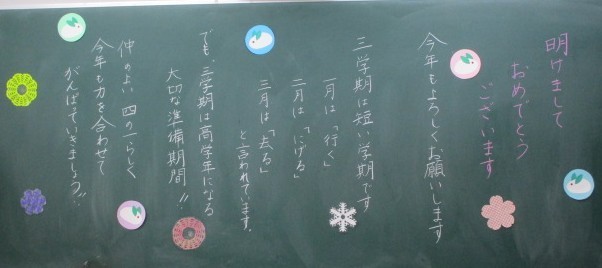 明けまして
おめでとう
ございます
今年もよろしくお願いします
三学期は短い学期です
一月は「行く」
二月は「にげる」
三月は「去る」
と言われています。
でも、三学期は高学年になる
大切な準備期間!!
仲のよい 四の一らしく
今年も力を合わせて
がんばっていきましょう!!